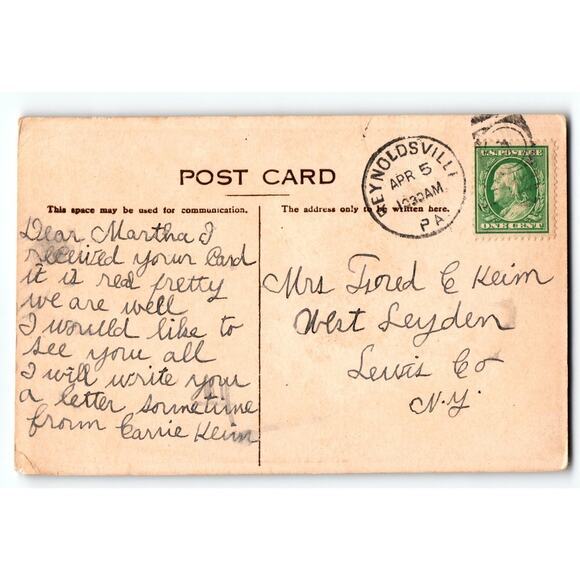 POST CARD
This space may be used for communication.
The address only to be written here.
REYNOLDSVILLE
APR 5
1030AM
PA.
U.S. POSTAGE
ONE CENT
Dear Martha I
received your Card
it is real pretty
we are well
I would like to
see you all
I will write you
a letter sometime
from Carrie Keim
Mrs Fored C Keim
West Leyden
Lewis Co
N.Y.